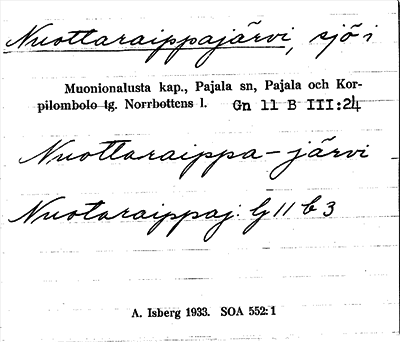 Nuottaraippajärvi, sjö i
Muonionalusta kap., Pajala sn, Pajala och Kor-
pilombolo tg. Norrbottens l. Gn 11 B III:24
Nuottaraippa-järvi
Nuotaraippaj. lj 11 b 3
A. Isberg 1933. SOA 552:1